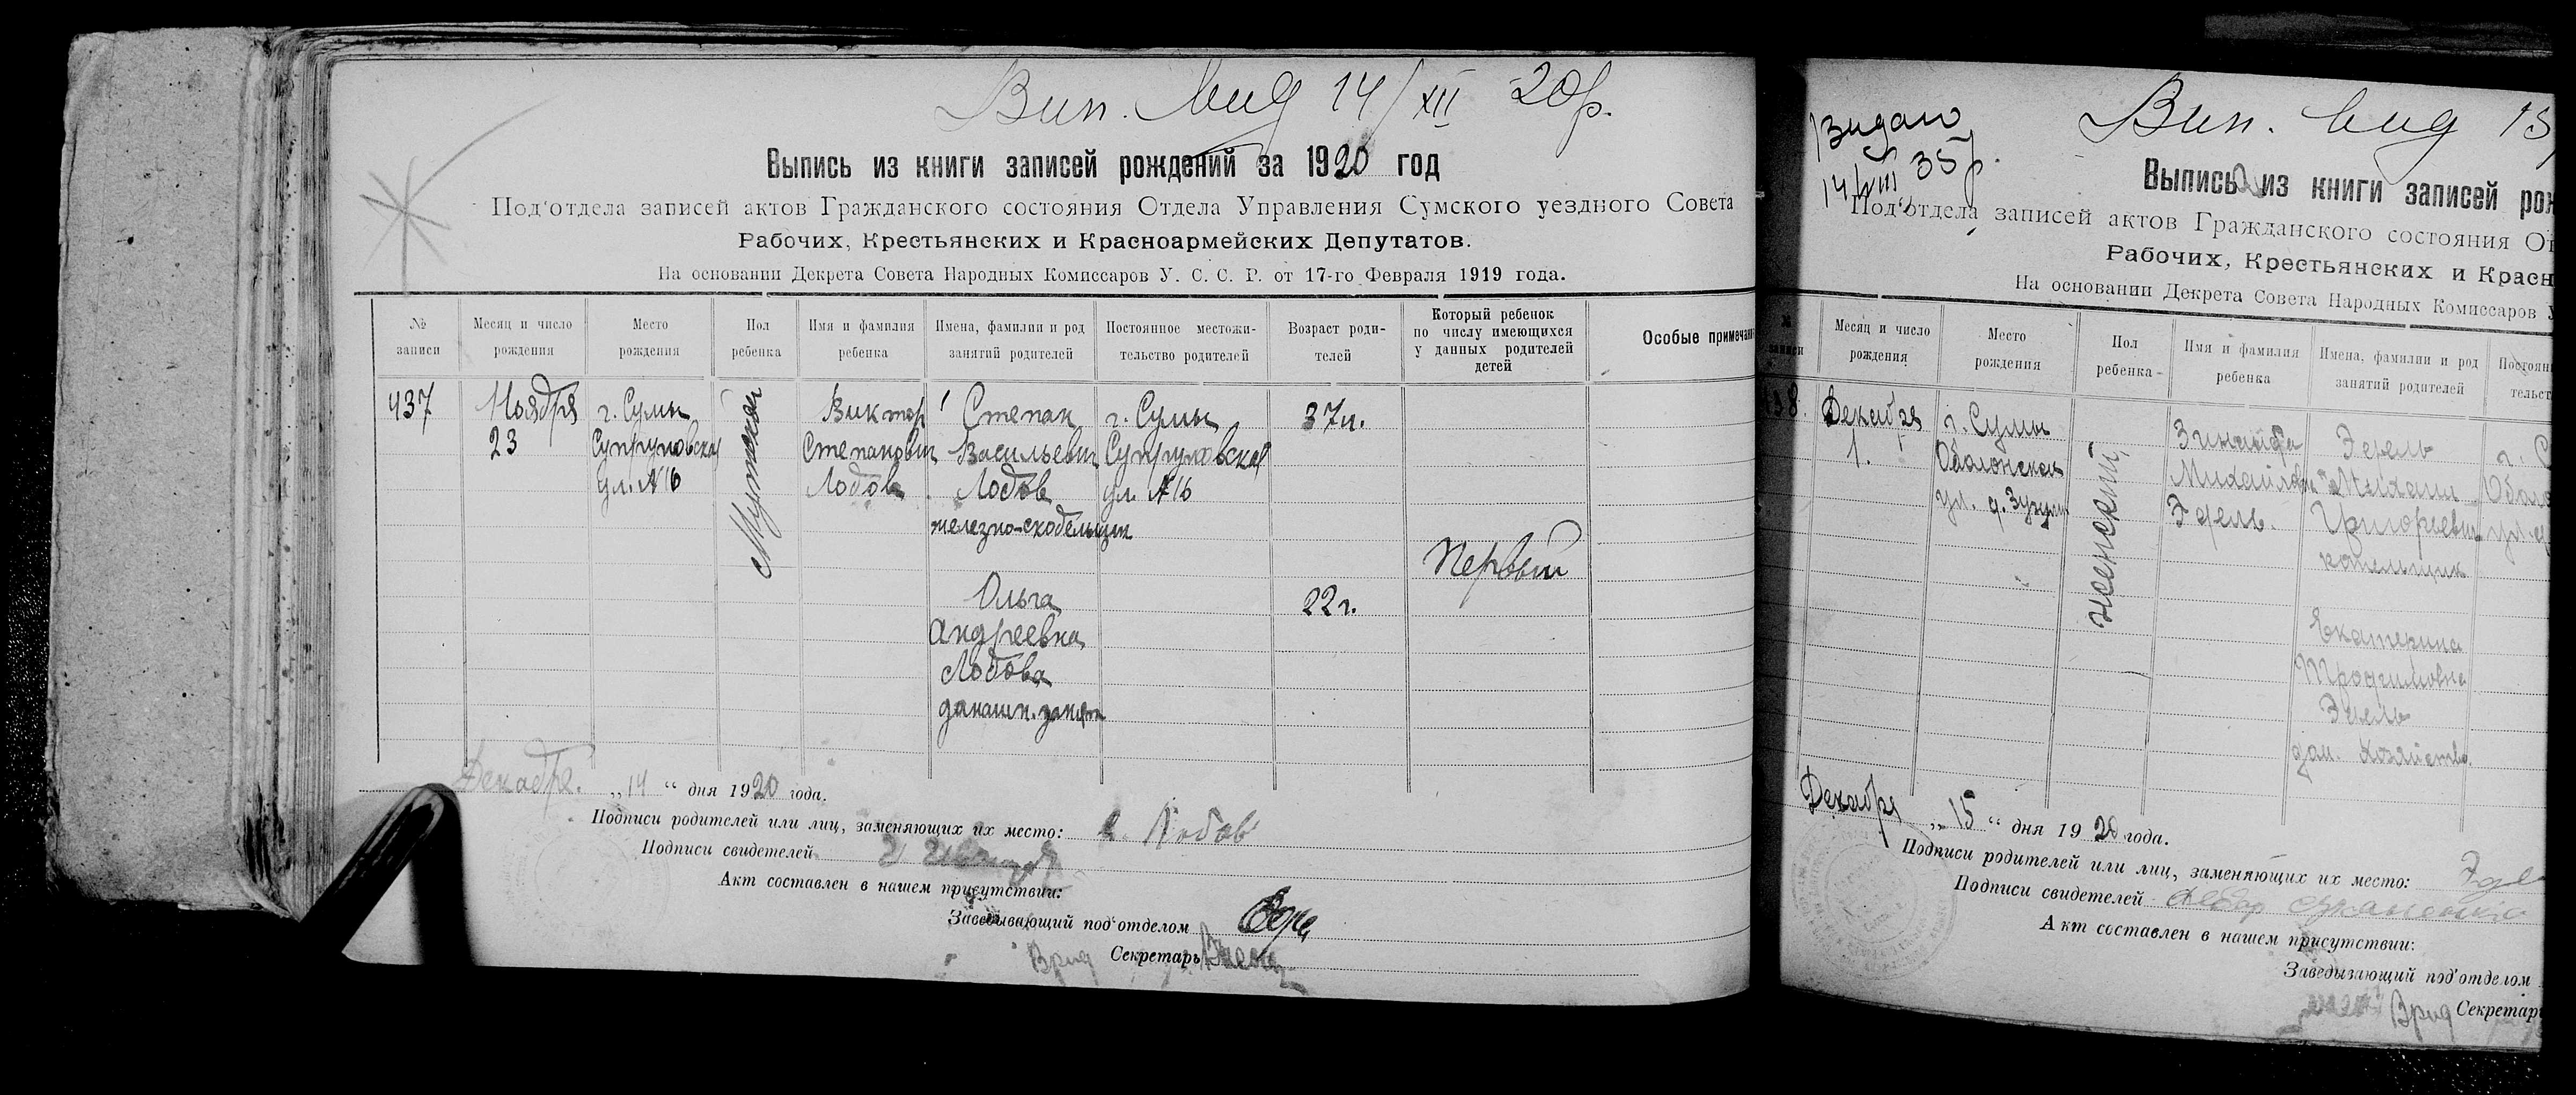 Вип. вид 14/XII 20р.
Выпись из книги записей рождений за 1920 год
Под'отдела записей актов Гражданского состояния Отдела Управления Сумского уездного Совета
Рабочих, Крестьянских и Красноармейских Депутатов.
На основании Декрета Совета Народных Комиссаров У. С. С. Р. от 17-го Февраля 1919 года.
№ записи
Месяц и число рождения
Место рождения
Пол ребенка
Имя и фамилия ребенка
Имена, фамилии и род занятий родителей
Постоянное местожительство родителей
Возраст родителей
Который ребенок по числу имеющихся у данных родителей детей
Особые примечан
437
Ноября
23
г. Сумы
Супруновская
ул. №16
Мужская
Виктор
Степанович
Лобов
Степан
Васильевич
Лобов
железно-скобельщик
Ольга
Андреевна
Лобова
г. Сумы
Супруновская
ул. №16
37л.
22г.
Первый
Декабря „14“ дня 1920 года.
Подписи родителей или лиц, заменяющих их место: Лобов
Подписи свидетелей
Акт составлен в нашем присутствии:
Заведывающий под'отделом
Врид Секретарь
Видано
14/VIII 35р.
Вип. вид 15/
Выпись из книги записей рож
Под'отдела записей актов Гражданского состояния От
Рабочих, Крестьянских и Красн
На основании Декрета Совета Народных Комиссаров У
№ записи
Месяц и число рождения
Место рождения
Пол ребенка
Имя и фамилия ребенка
Имена, фамилии и род занятий родителей
Постоян
тельст
38.
Декабря
1.
г. Сумы
Оболонская
ул. д.
женский
Зинаида
Михайлов
Эдель
Эдель
Михаил
Григорьевич
котельщик
Екатерина
Трофимовна
Эдель
дом. хозяйство
г. С
Оболо
ул.
Декабря „15“ дня 1920 года.
Подписи родителей или лиц, заменяющих их место: Эдел
Подписи свидетелей
Акт составлен в нашем присутствии:
Заведывающий под'отделом
Врид Секретарь